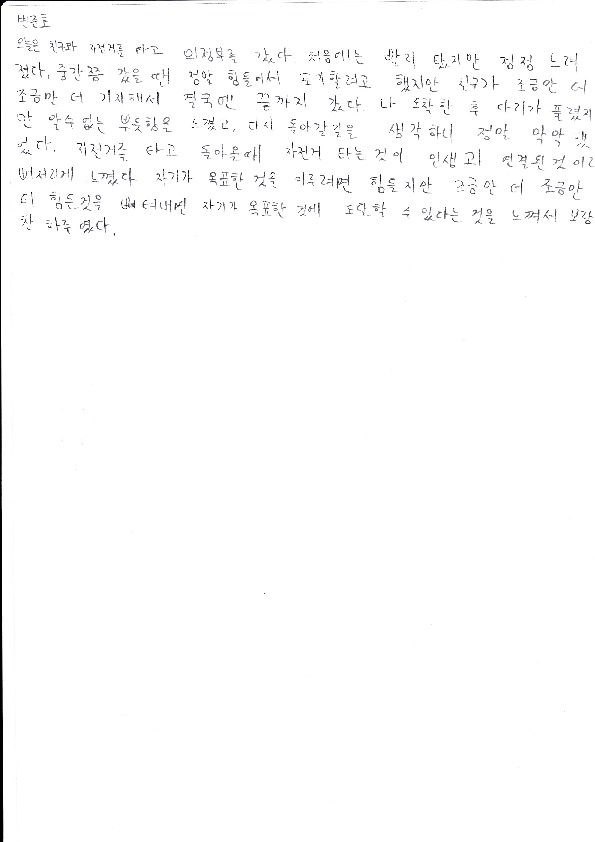 변준호
오늘은 친구와 자전거를 타고 의정부로 갔다 처음에는 빨리 탔지만 점점 느려
졌다. 중간쯤 갔을 때 정말 힘들어서 포기할려고 했지만 친구가 조금만 더
조금만 더 기지해서 결국엔 끝까지 갔다 나 도착한 후 다리가 풀렸지
만 알수없는 부듯함을 느꼈고, 다시 돌아갈길을 생각하니 정말 막막했
었다. 자전거를 타고 돌아올때 자전거 타는 것이 인생과 연결된 것이라
느꼈다 자기가 목표한 것을 이루려면 힘들지만 조금만 더 조금만
더 힘든것을 뻐텨내면 자기가 목표한 것에 도달할 수 있다는 것을 느껴서 보람
찬 하루였다.